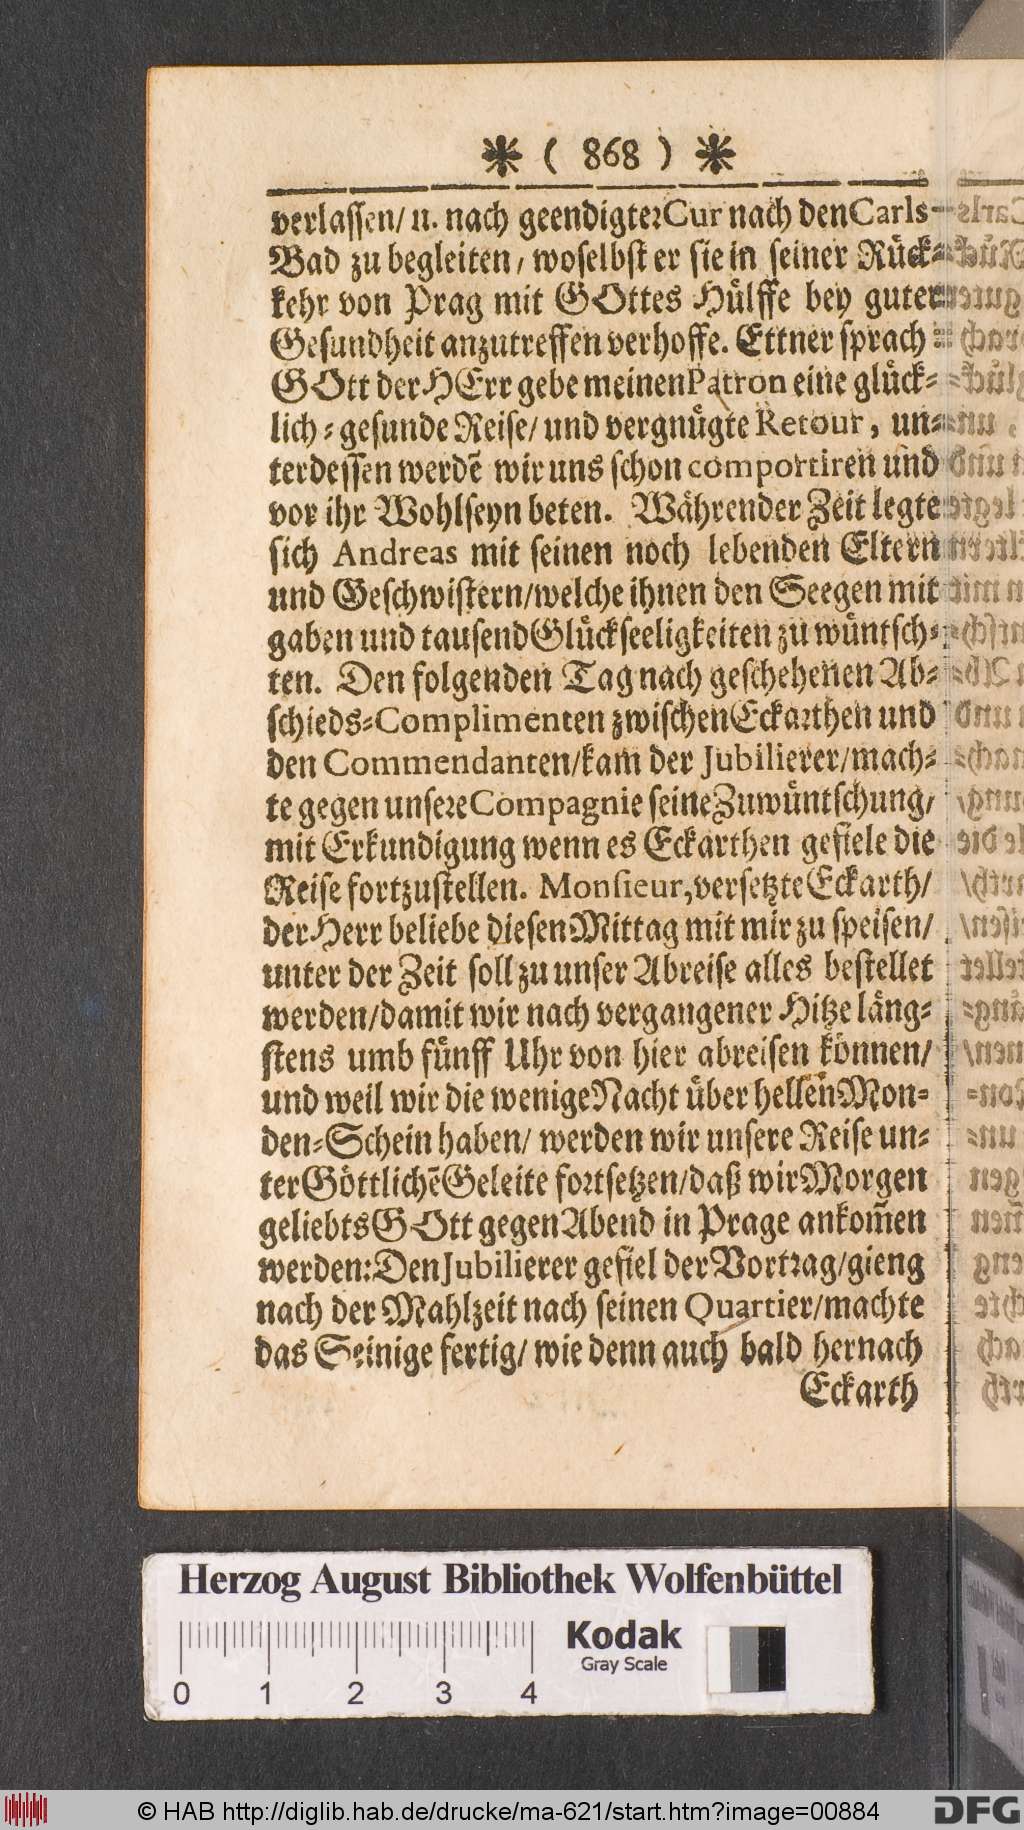 ❋ ( 868 ) ❋
verlassen/ u. nach geendigter Cur nach den Carls-
Bad zu begleiten/ woselbst er sie in seiner Rück-
kehr von Prag mit GOttes Hülffe bey guter
Gesundheit anzutreffen verhoffe. Ettner sprach
GOtt der HErr gebe meinen Patron eine glück-
lich-gesunde Reise/ und vergnügte Retour, un-
terdessen werdē wir uns schon comportiren und
vor ihr Wohlseyn beten. Währender Zeit legte
sich Andreas mit seinen noch lebenden Eltern
und Geschwistern/welche ihnen den Seegen mit
gaben und tausend Glückseeligkeiten zu wüntsch-
ten. Den folgenden Tag nach geschehenen Ab-
schieds-Complimenten zwischen Eckarthen und
den Commendanten/kam der Jubilierer/mach-
te gegen unsere Compagnie seine Zuwüntschung/
mit Erkundigung wenn es Eckarthen gefiele die
Reise fortzustellen. Monsieur, versetzte Eckarth/
der Herr beliebe diesen Mittag mit mir zu speisen/
unter der Zeit soll zu unser Abreise alles bestellet
werden/damit wir nach vergangener Hitze läng-
stens umb fünff Uhr von hier abreisen können/
und weil wir die wenige Nacht über hellen Mon-
den-Schein haben/ werden wir unsere Reise un-
ter Göttlichē Geleite fortsetzen/daß wir Morgen
geliebts GOtt gegen Abend in Prage ankom̃en
werden: Den Jubilierer gefiel der Vortrag/gieng
nach der Mahlzeit nach seinen Quartier/machte
das Seinige fertig/ wie denn auch bald hernach
Eckarth
Herzog August Bibliothek Wolfenbüttel
Kodak
Gray Scale
0 1 2 3 4
© HAB http://diglib.hab.de/drucke/ma-621/start.htm?image=00884
DFG